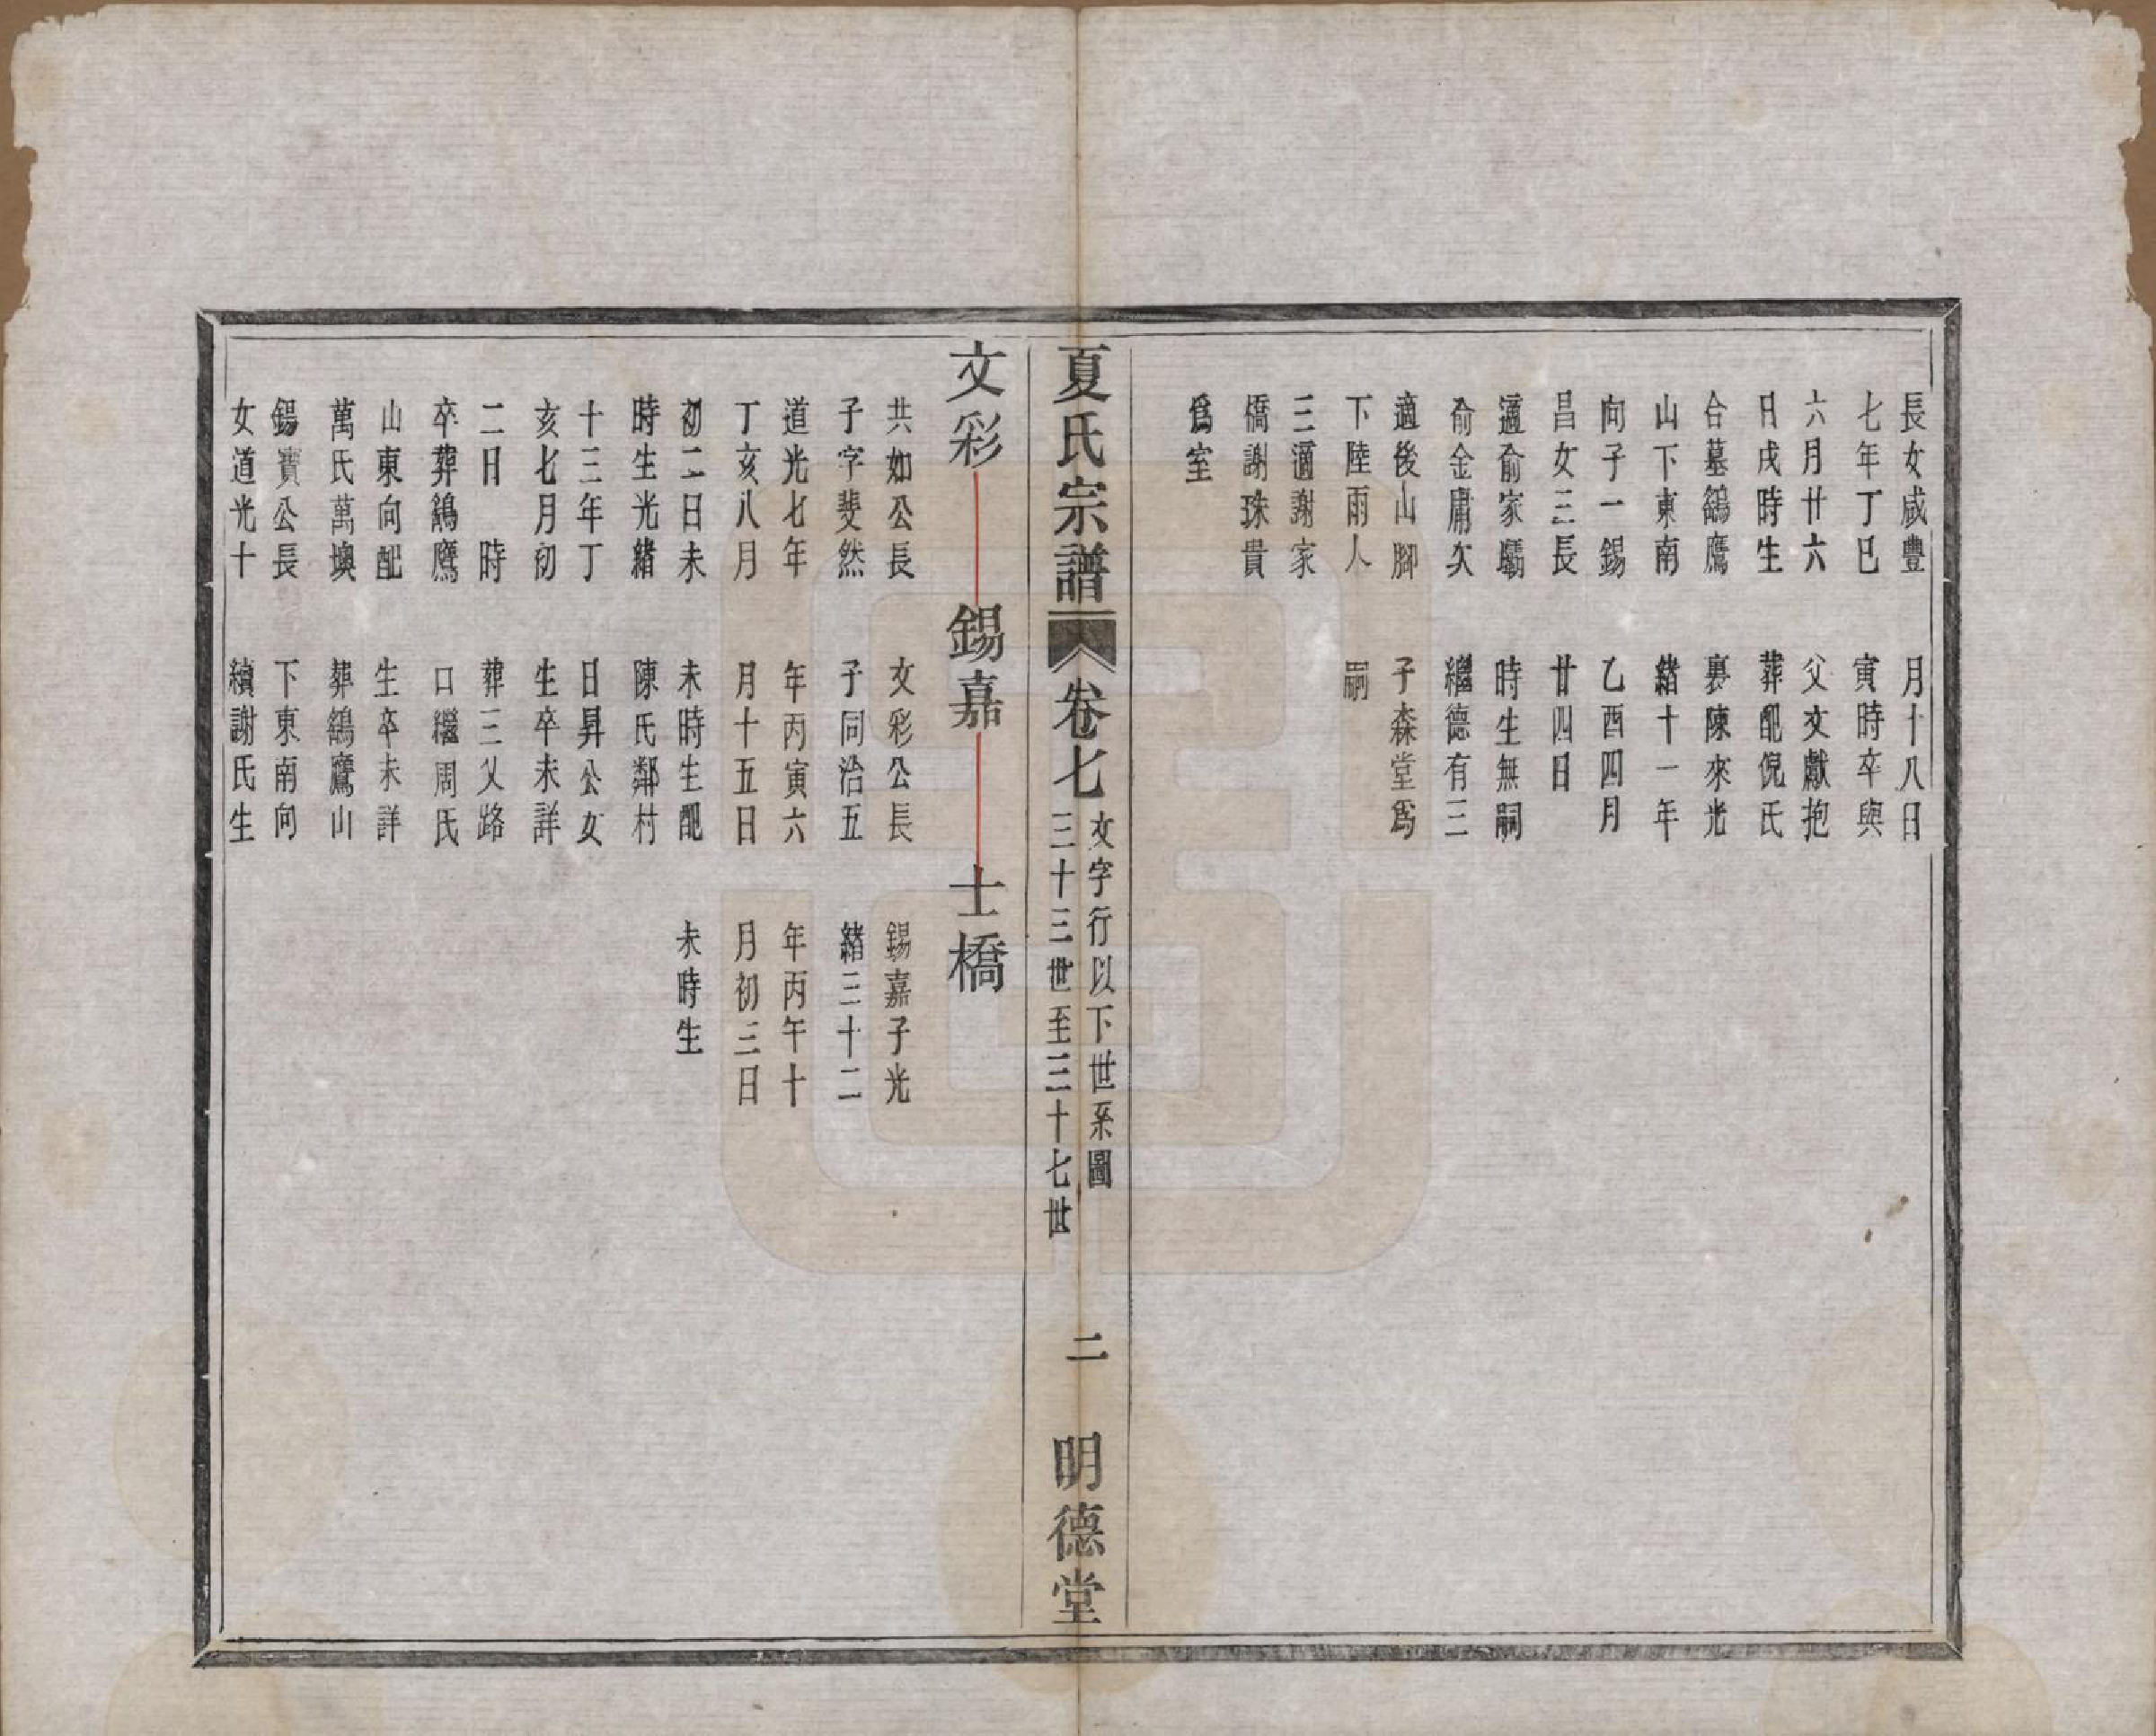 長女咸豐
七年丁巳
六月廿六
日戌時生
合墓鷂鷹
山下東南
向子一錫
昌女三長
適俞家壩
俞金庸次
適後山腳
下陸雨人
三適謝家
橋謝珠貴
爲室
月十八日
寅時卒與
父文獻抱
葬配倪氏
裏陳來光
緒十一年
乙酉四月
廿四日
時生無嗣
繼德有三
子森堂爲
嗣
夏氏宗譜
卷七
文字行以下世系圖
三十三世至三十七世
二
明德堂
文彩
錫嘉
士橋
共如公長
子字斐然
道光七年
丁亥八月
初二日未
時生光緒
十三年丁
亥七月初
二日 時
卒葬鷂鷹
山東向配
萬氏萬墺
錫寶公長
女道光十
文彩公長
子同治五
年丙寅六
月十五日
未時生配
陳氏鄰村
日昇公女
生卒未詳
葬三乂路
口繼周氏
生卒未詳
葬鷂鷹山
下東南向
續謝氏生
錫嘉子光
緒三十二
年丙午十
月初三日
未時生